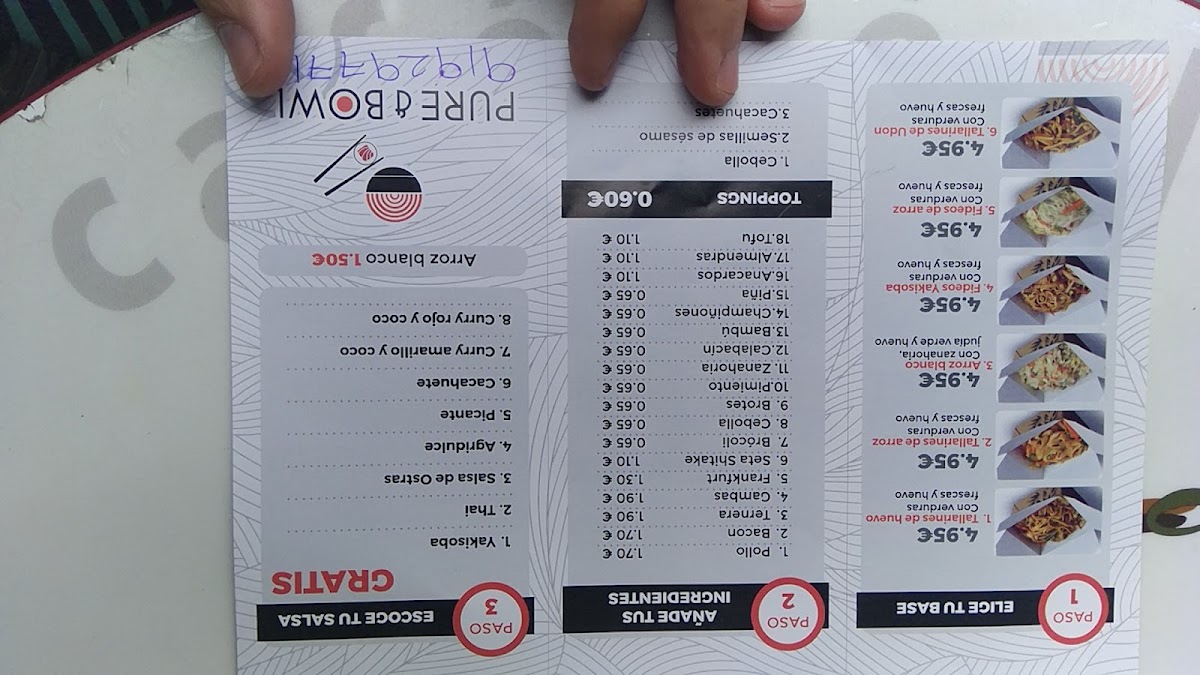 PASO
1
ELIGE TU BASE
4.95€
1. Tallarines de huevo
Con verduras
frescas y huevo
4.95€
2. Tallarines de arroz
Con verduras
frescas y huevo
4.95€
3. Arroz blanco
Con zanahoria,
judía verde y huevo
4.95€
4. Fideos Yakisoba
Con verduras
frescas y huevo
4.95€
5. Fideos de arroz
Con verduras
frescas y huevo
4.95€
6. Tallarines de Udon
Con verduras
frescas y huevo
PASO
2
AÑADE TUS
INGREDIENTES
1. Pollo 1.70 €
2. Bacon 1.70 €
3. Ternera 1.90 €
4. Gambas 1.90 €
5. Frankfurt 1.30 €
6. Seta Shitake 1.10 €
7. Brócoli 0.65 €
8. Cebolla 0.65 €
9. Brotes 0.65 €
10.Pimiento 0.65 €
11. Zanahoria 0.65 €
12.Calabacín 0.65 €
13.Bambú 0.65 €
14.Champiñones 0.65 €
15.Piña 0.65 €
16.Anacardos 1.10 €
17.Almendras 1.10 €
18.Tofu 1.10 €
TOPPINGS 0.60€
1. Cebolla
2.Semillas de sésamo
3.Cacahuetes
PASO
3
ESCOGE TU SALSA
GRATIS
1. Yakisoba
2. Thai
3. Salsa de Ostras
4. Agridulce
5. Picante
6. Cacahuete
7. Curry amarillo y coco
8. Curry rojo y coco
Arroz blanco 1.50€
PURE & BOWL
91929771